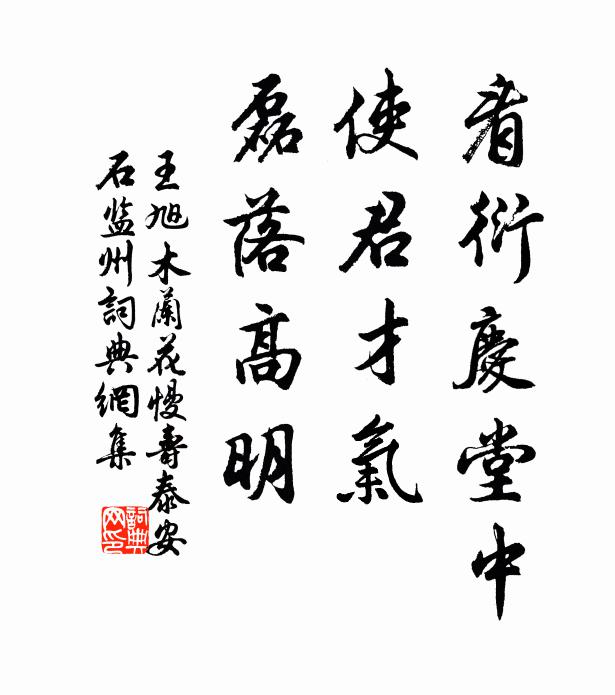 看衍慶堂中
使君才氣
磊落高明
王旭木蘭花慢壽泰安
石监州詞典網集
詞典
网印